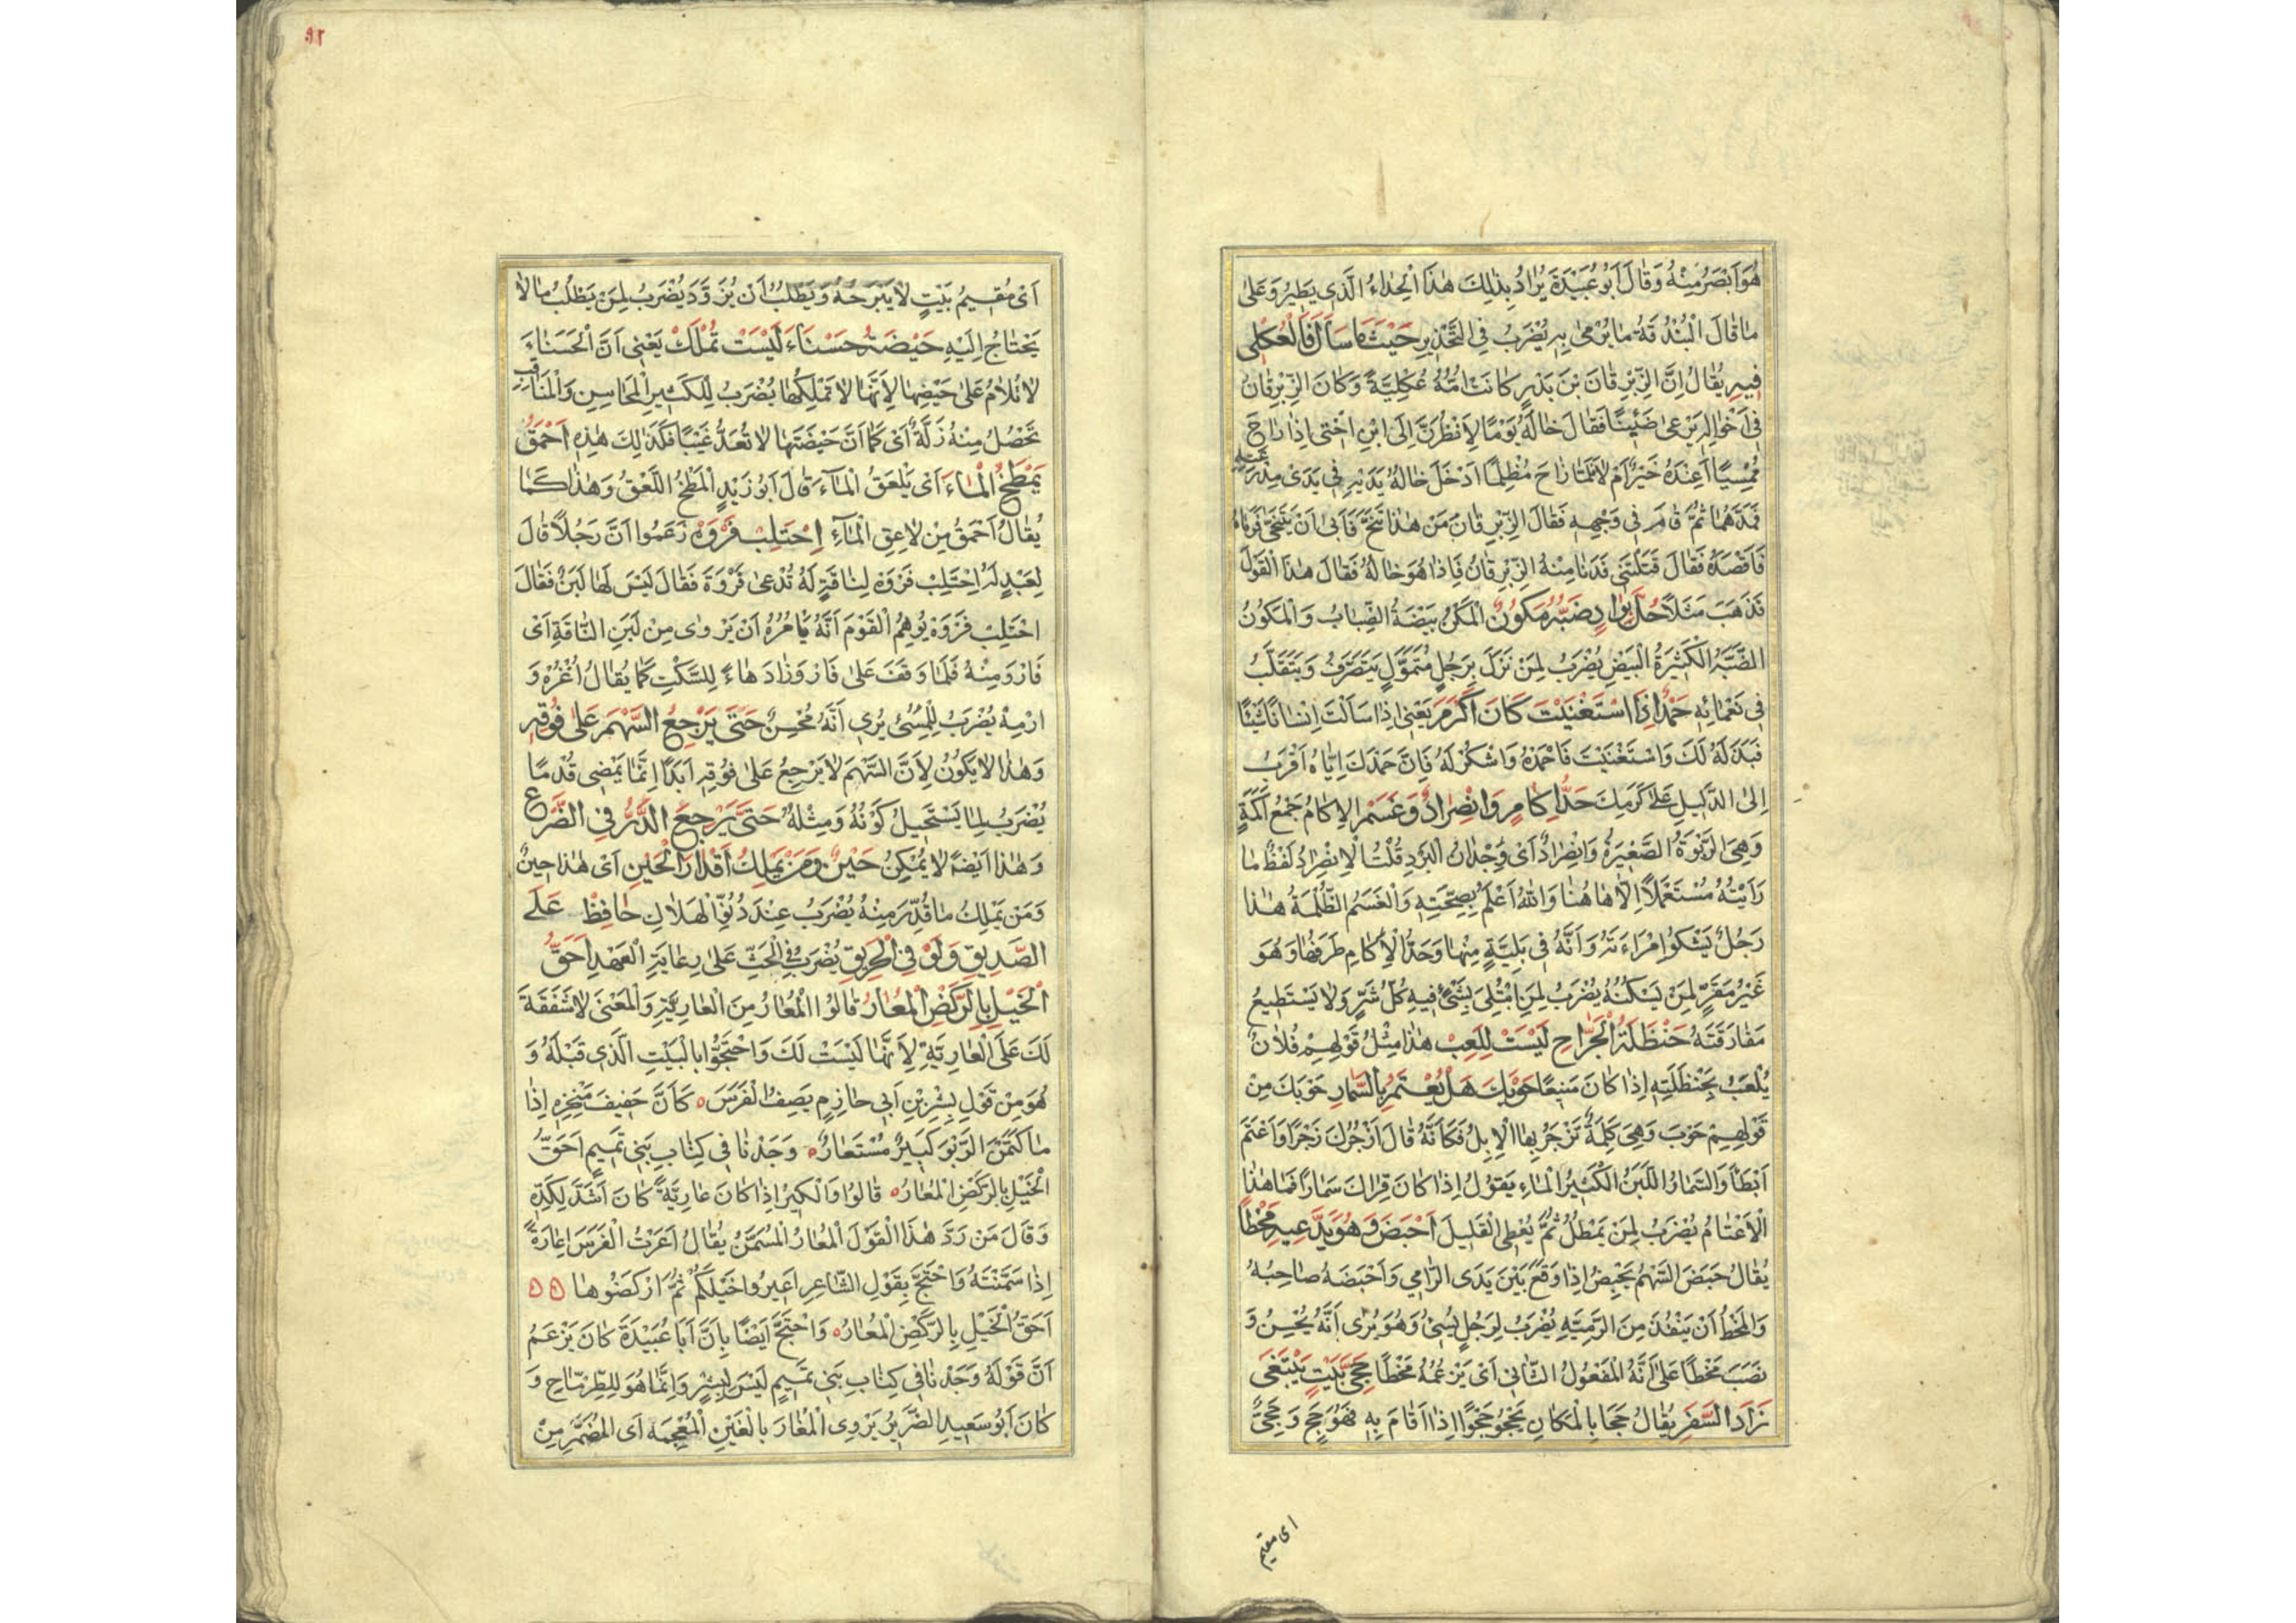 هُوَ اَبْصَرُ مِنْهُ وَقَالَ اَبُو عُبَيْدَةَ يُرَادُ بِذٰلِكَ هٰذَا الْحِدَاءُ الَّذِى يَطِيرُ وَعَلٰى
مَا قَالَ الْبُنْدُقَةُ مَا يُرْمٰى بِهِ يُضْرَبُ فِى التَّحْذِيرِ حَيْثُ مَا سَاَلَ فَالْعُكْلِى
فِيهِ يُقَالُ اِنَّ الزِّبْرِقَانَ بْنَ بَدْرٍ كَانَتْ اُمُّهُ عُكْلِيَّةً وَكَانَ الزِّبْرِقَانُ
فِى اَخْوَالِهِ يَرْعٰى ضَئِينًا فَقَالَ خَالُهُ يَوْمًا لَاَنْظُرَنَّ اِلَى ابْنِ اُخْتِى اِذَا رَاحَ
مُمْسِيًا اَعِنْدَهُ خَيْرٌ اَمْ لَا فَلَمَّا رَاحَ مُظْلِمًا اَدْخَلَ خَالُهُ يَدَيْهِ فِى يَدَىْ مِدْرَعَتِهِ
فَمَدَّهُمَا ثُمَّ قَامَ فِى وَجْهِهِ فَقَالَ الزِّبْرِقَانُ مَنْ هٰذَا تَنَحَّ فَاَبٰى اَنْ يَتَنَحّٰى فَرَمَاهُ
فَاَقْصَدَهُ فَقَالَ قَتَلْتَنِى فَدَنَا مِنْهُ الزِّبْرِقَانُ فَاِذَا هُوَ خَالُهُ فَقَالَ هٰذَا الْقَوْلَ
فَذَهَبَ مَثَلًا حُلَّ بِوَادٍ ضَبُّهُ مَكُونٌ الْمَكْنُ بَيْضَةُ الضِّبَابُ وَالْمَكُونُ
الضَّبَّةُ الْكَثِيرَةُ الْبَيْضِ يُضْرَبُ لِمَنْ نَزَلَ بِرَجُلٍ مُتَمَوِّلٍ يَتَصَرَّفُ وَيَتَقَلَّبُ
فِى نَعْمَائِهِ حَمْدٌ اِذَا اسْتَغْنَيْتَ كَانَ اَكْرَمَ يَعْنِى اِذَا سَاَلْتَ اِنْسَانًا شَيْئًا
فَبَذَلَهُ لَكَ وَاسْتَغْنَيْتَ فَاحْمَدْهُ وَاشْكُرْ لَهُ فَاِنَّ حَمْدَكَ اِيَّاهُ اَقْرَبُ
اِلَى الدَّلِيلِ عَلٰى كَرَمِكَ حَدُّ اِكَامٍ وَانْصِرَادٌ وَغَسَمْ الْاِكَامُ جَمْعُ اَكَمَةٍ
وَهِىَ الرَّبْوَةُ الصَّغِيرَةُ وَانْصِرَادٌ اَىْ وِجْدَانُ الْبَرْدِ قُلْتُ الْاِنْصِرَادُ لَفْظٌ مَا
رَاَيْتُهُ مُسْتَعْمَلًا اِلَّا هَاهُنَا وَاللّٰهُ اَعْلَمُ بِصِحَّتِهِ وَالْغَسَمُ الظُّلْمَةُ هٰذَا
رَجُلٌ يَشْكُو امْرَاَءَتَهُ وَاَنَّهُ فِى بَلِيَّةٍ مِنْهَا وَحَدُّ الْاِكَامِ طَرَفُهَا وَهُوَ
غَيْرُ مَقَرٍّ لِمَنْ يَسْكُنُهُ يُضْرَبُ لِمَنِ ابْتُلِىَ بِشَىْءٍ فِيهِ كُلُّ شَرٍّ وَلَا يَسْتَطِيعُ
مُفَارَقَتَهُ حَنْظَلَةُ الْجَرَّاحِ لَيْسَتْ لِلَّعِبِ هٰذَا مِثْلُ قَوْلِهِمْ فُلَانٌ
يُلْعَبُ بِحَنْظَلَتِهِ اِذَا كَانَ مَنِيعًا حَوْبَكَ هَلْ يُعْتَمُ بِالسَّمَارِ حَوْبَكَ مِنْ
قَوْلِهِمْ حَوْبَ وَهِىَ كَلِمَةٌ تُزْجَرُ بِهَا الْاِبِلُ فَكَاَنَّهُ قَالَ اَزْجُرُكَ زَجْرًا وَاَعْتَمَ
اَبْطَاَ وَالسَّمَارُ اللَّبَنُ الْكَثِيرُ الْمَاءِ يَقُولُ اِذَا كَانَ قِرَاكَ سَمَارًا فَمَا هٰذَا
الْاِعْتَامُ يُضْرَبُ لِمَنْ يَمْطُلُ ثُمَّ يُعْطِى الْقَلِيلَ اَحْبَضَ وَهُوَ يَدَّعِيهِ مَخْطًا
يُقَالُ حَبَضَ السَّهْمُ يَحْبِضُ اِذَا وَقَعَ بَيْنَ يَدَىِ الرَّامِى وَاَحْبَضَهُ صَاحِبُهُ
وَالْمَخْطُ اَنْ يَنْفُذَ مِنَ الرَّمِيَّةِ يُضْرَبُ لِرَجُلٍ يُسِىءُ وَهُوَ يُرٰى اَنَّهُ يُحْسِنُ وَ
نَصَبَ مَخْطًا عَلٰى اَنَّهُ الْمَفْعُولُ الثَّانِى اَىْ يَزْعُمُهُ مَخْطًا حَجِىُّ بَيْتٍ يَبْتَغِى
زَادَ السَّفَرِ يُقَالُ حَجَا بِالْمَكَانِ يَحْجُو حَجْوًا اِذَا اَقَامَ بِهِ فَهُوَ حَجٍ وَحَجِىٌّ
اى مقيم
اَىْ مُقِيمُ بَيْتٍ لَا يَبْرَحُهُ وَيَطْلُبُ اَنْ يُزَوَّدَ يُضْرَبُ لِمَنْ يَطْلُبُ مَا لَا
يَحْتَاجُ اِلَيْهِ حَيْضَةُ حَسْنَاءَ لَيْسَتْ تُمْلَكْ يَعْنِى اَنَّ الْحَسَنَاءَ
لَا تُلَامُ عَلٰى حَيْضِهَا لِاَنَّهَا لَا تَمْلِكُهَا يُضْرَبُ لِلْكَثِيرِ الْمَحَاسِنِ وَالْمَنَاقِبِ
تَحْصُلُ مِنْهُ زَلَّةٌ اَىْ كَمَا اَنَّ حَيْضَتَهَا لَا تُعَدُّ عَيْبًا فَكَذٰلِكَ هٰذِهِ اَحْمَقُ
يَمْطَخُ الْمَاءَ اَىْ يَلْعَقُ الْمَاءَ قَالَ اَبُو زَيْدٍ الْمَطْخُ اللَّعْقُ وَهٰذَا كَمَا
يُقَالُ اَحْمَقُ مِنْ لَاعِقِ الْمَاءِ اِحْتَلِبْ فَرْوَهْ زَعَمُوا اَنَّ رَجُلًا قَالَ
لِعَبْدٍ لَهُ اِحْتَلِبْ فَرْوَهْ لِنَاقَةٍ لَهُ تُدْعٰى فَرْوَةَ فَقَالَ لَيْسَ لَهَا لَبَنٌ فَقَالَ
احْتَلِبْ فَرْوَهْ يُوهِمُ الْقَوْمَ اَنَّهُ يَامُرُهُ اَنْ يَرْوٰى مِنْ لَبَنِ النَّاقَةِ اَىْ
فَارْوَ مِنْهُ فَلَمَّا وَقَفَ عَلٰى فَارْوَ زَادَ هَاءً لِلسَّكْتِ كَمَا يُقَالُ اُغْزُهْ وَ
ارْمِهْ يُضْرَبُ لِلْمُسِىءِ يُرِى اَنَّهُ مُحْسِنٌ حَتّٰى يَرْجِعَ السَّهْمُ عَلٰى فُوقِهِ
وَهٰذَا لَا يَكُونُ لِاَنَّ السَّهْمَ لَا يَرْجِعُ عَلٰى فُوقِهِ اَبَدًا اِنَّمَا يَمْضِى قُدْمًا
يُضْرَبُ لِمَا يَسْتَحِيلُ كَوْنُهُ وَمِثْلُهُ حَتّٰى يَرْجِعَ الدَّرُّ فِى الضَّرْعِ
وَهٰذَا اَيْضًا لَا يُمْكِنُ حَيْنٌ وَمَنْ يَمْلِكُ اَقْدَارَ الْحَيْنِ اَىْ هٰذَا حِينٌ
وَمَنْ يَمْلِكُ مَا قُدِّرَ مِنْهُ يُضْرَبُ عِنْدَ دُنُوِّ الْهَلَاكِ حَافِظْ عَلَى
الصَّدِيقِ وَلَوْ فِى الْحَرِيقِ يُضْرَبُ فِى الْحَثِّ عَلٰى رِعَايَةِ الْعَهْدِ اَحَقُّ
الْخَيْلِ بِالرَّكْضِ الْمُعَارُ قَالُوا الْمُعَارُ مِنَ الْعَارِيَّةِ وَالْمَعْنٰى لَا شَفَقَةَ
لَكَ عَلَى الْعَارِيَّةِ لِاَنَّهَا لَيْسَتْ لَكَ وَاحْتَجُّوا بِالْبَيْتِ الَّذِى قَبْلَهُ وَ
هُوَ مِنْ قَوْلِ بِشْرِ بْنِ اَبِى حَازِمٍ يَصِفُ الْفَرَسَ ه كَاَنَّ حَفِيفَ مَنْخِرِهِ اِذَا
مَا كَتَمْنَ الرَّبْوَ كِيرٌ مُسْتَعَارُ ه وَجَدْنَا فِى كِتَابِ بَنِى تَمِيمٍ اَحَقُّ
الْخَيْلِ بِالرَّكْضِ الْمُعَارُ ه قَالُوا وَالْكِيرُ اِذَا كَانَ عَارِيَّةً كَانَ اَشَدَّ لِكَدِّهِ
وَقَالَ مَنْ رَدَّ هٰذَا الْقَوْلَ الْمُعَارُ الْمُسَمَّنُ يُقَالُ اَعَرْتُ الْفَرَسَ اِعَارَةً
اِذَا سَمَّنْتَهُ وَاحْتَجَّ بِقَوْلِ الشَّاعِرِ اَعِيرُوا خَيْلَكُمْ ثُمَّ ارْكَضُوهَا ه ه
اَحَقُّ الْخَيْلِ بِالرَّكْضِ الْمُعَارُ ه وَاحْتَجَّ اَيْضًا بِاَنَّ اَبَا عُبَيْدَةَ كَانَ يَزْعَمُ
اَنَّ قَوْلَهُ وَجَدْنَا فِى كِتَابِ بَنِى تَمِيمٍ لَيْسَ لِبِشْرٍ وَاِنَّمَا هُوَ لِلطِّرِمَّاحِ وَ
كَانَ اَبُو سَعِيدٍ الضَّرِيرُ يَرْوِى الْمُغَارَ بِالْغَيْنِ الْمُعْجَمَةِ اَىِ الْمُضَمَّرُ مِنْ